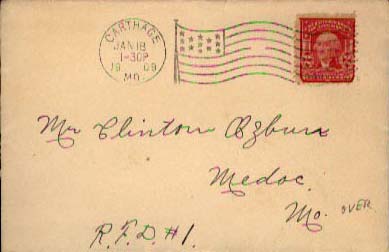 CARTHAGE
JAN 18
1-30P
19 09
MO.
Mr Clinton Ozbun
Medoc.
Mo. OVER
R.F.D. #1.